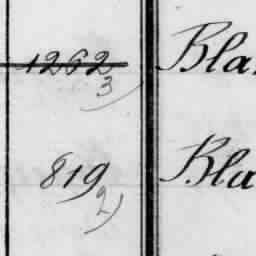 1262 Bla
3)
819 Bla
2)